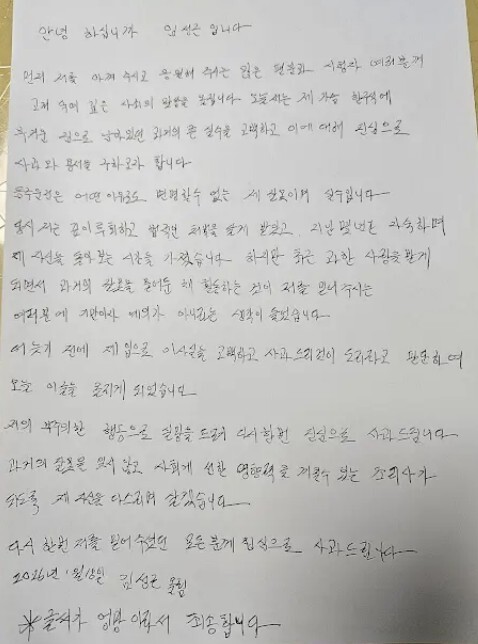 안녕 하십니까 임성근 입니다
먼저 저를 아껴 주시고 응원해 주시는 많은 팬분과 시청자 여러분께
고개 숙여 깊은 사죄의 말씀을 드립니다 오늘 저는 제 가슴 한구석에
무거운 짐으로 남아있던 과거의 큰 실수를 고백하고 이에 대해 진심으로
사과와 용서를 구하고자 합니다
음주운전은 어떤 이유로도 변명할수 없는 제 잘못이며 실수입니다
당시 저는 깊이 후회하고 법적인 처벌을 달게 받았고, 지난 몇년간 자숙하며
제 자신을 돌아보는 시간을 가졌습니다 하지만 최근 과한 사랑을 받게
되면서 과거의 잘못을 묻어둔 채 활동하는 것이 저를 믿어주시는
여러분에 기만이자 예의가 아니라는 생각이 들었습니다
더 늦기 전에 제 입으로 이사실을 고백하고 사과드리는것이 도리라고 판단하여
오늘 이글을 올리게 되었습니다
저의 부주의한 행동으로 실망을 드려 다시한번 진심으로 사과드립니다
과거의 잘못을 잊지 않고 사회에 선한 영향력을 끼칠수 있는 조리사가
되도록 제 자신을 다스리며 살겠습니다
다시 한번 저를 믿어주셨던 모든 분께 진심으로 사과드립니다
2026년 1월 김성근 올림
*글씨가 엉망 이라서 죄송합니다